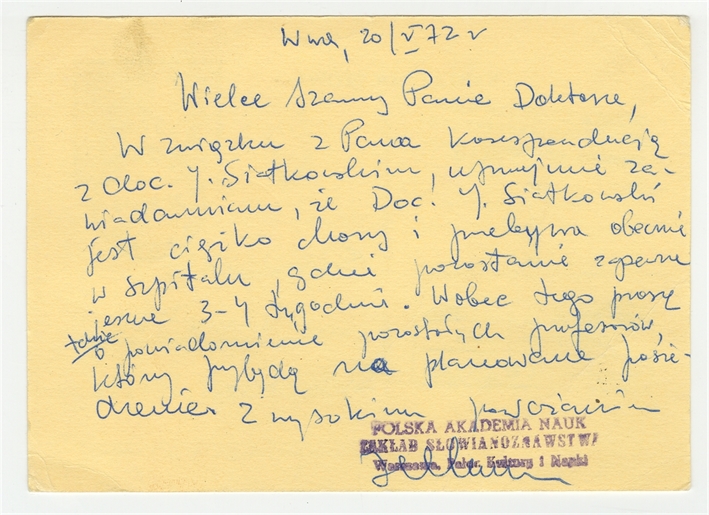 W-wa, 20/V 72 r
Wielce Szanowny Panie Doktorze,
W związku z Pana korespondencją
z doc. J. Siatkowskim, uprzejmie za-
wiadamiam, że Doc. J. Siatkowski
jest ciężko chory i przebywa obecnie
w szpitalu, gdzie pozostanie zapewne
jeszcze 3-4 tygodnie. Wobec tego proszę
także
o powiadomienie pozostałych profesorów,
którzy przybędą na planowane posie-
dzenie. Z wysokim poważaniem
POLSKA AKADEMIA NAUK
ZAKŁAD SŁOWIANOZNAWSTWA
Warszawa, Pałac Kultury i Nauki